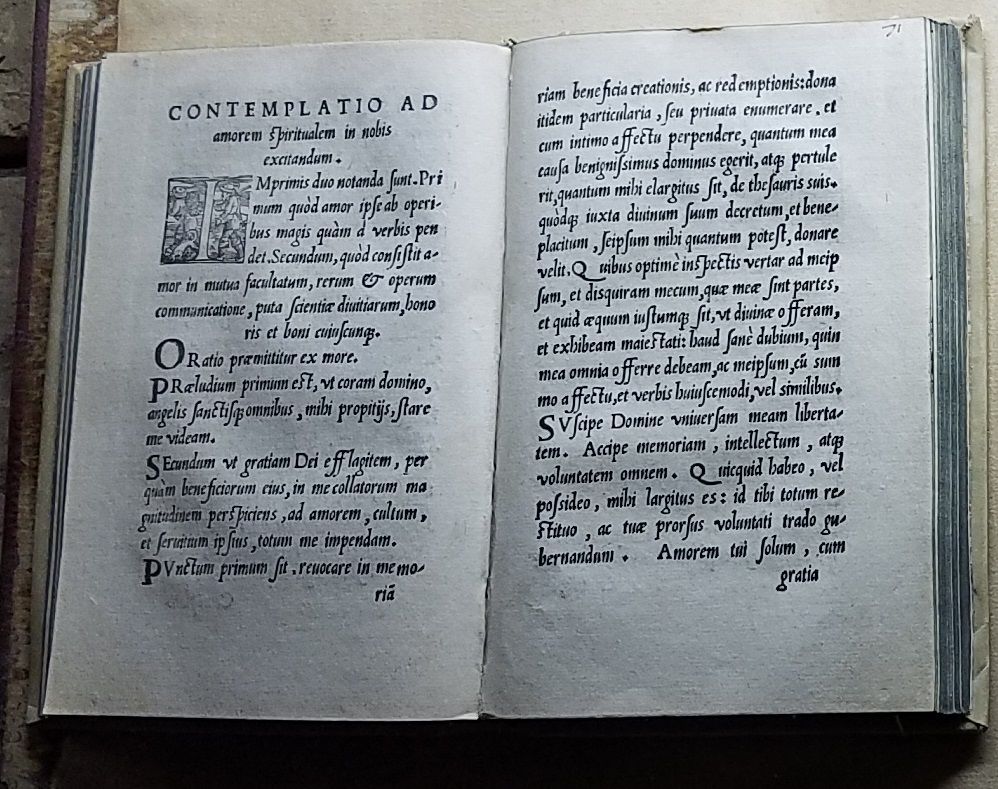 CONTEMPLATIO AD
amorem ſpiritualem in nobis
excitandum.
IMprimis duo notanda ſunt. Pri
mum quòd amor ipſe ab operi-
bus magis quàm à verbis pen
det. Secundum, quòd conſiſtit a-
mor in mutua facultatum, rerum & operum
communicatione, puta ſcientiæ diuitiarum, hono
ris et boni cuiuſcunqꝫ.
ORatio præmittitur ex more.
PRæludium primum eſt, vt coram domino,
angelis ſanctiſqꝫ omnibus, mihi propitijs, ſtare
me videam.
SEcundum vt gratiam Dei efflagitem, per
quàm beneficiorum eius, in me collatorum ma
gnitudinem perſpiciens, ad amorem, cultum,
et ſeruitium ipſius, totum me impendam.
PVnctum primum ſit. reuocare in memo-
riã
71
riam beneficia creationis, ac redemptionis: dona
itidem particularia, ſeu priuata enumerare. et
cum intimo affectu perpendere, quantum mea
cauſa benigniſsimus dominus egerit, atqꝫ pertule
rit, quantum mihi elargitus ſit, de theſauris suis.
quòdqꝫ iuxta diuinum ſuum decretum, et bene-
placitum, ſeipſum mihi quantum poteſt, donare
velit. Quibus optimè inſpectis vertar ad meip
ſum, et diſquiram mecum, quæ meæ ſint partes,
et quid æquum iuſtumqꝫ ſit, vt diuinæ offeram,
et exhibeam maieſtati: haud ſanè dubium, quin
mea omnia offerre debeam, ac meipſum, cũ sum
mo affectu, et verbis huiuſcemodi, vel ſimilibus.
SVſcipe Domine vniuerſam meam liberta-
tem. Accipe memoriam, intellectum, atqꝫ
voluntatem omnem. Quicquid habeo, vel
poſsideo, mihi largitus es: id tibi totum re-
ſtituo, ac tuæ prorſus voluntati trado gu-
bernandum. Amorem tui ſolum, cum
gratia